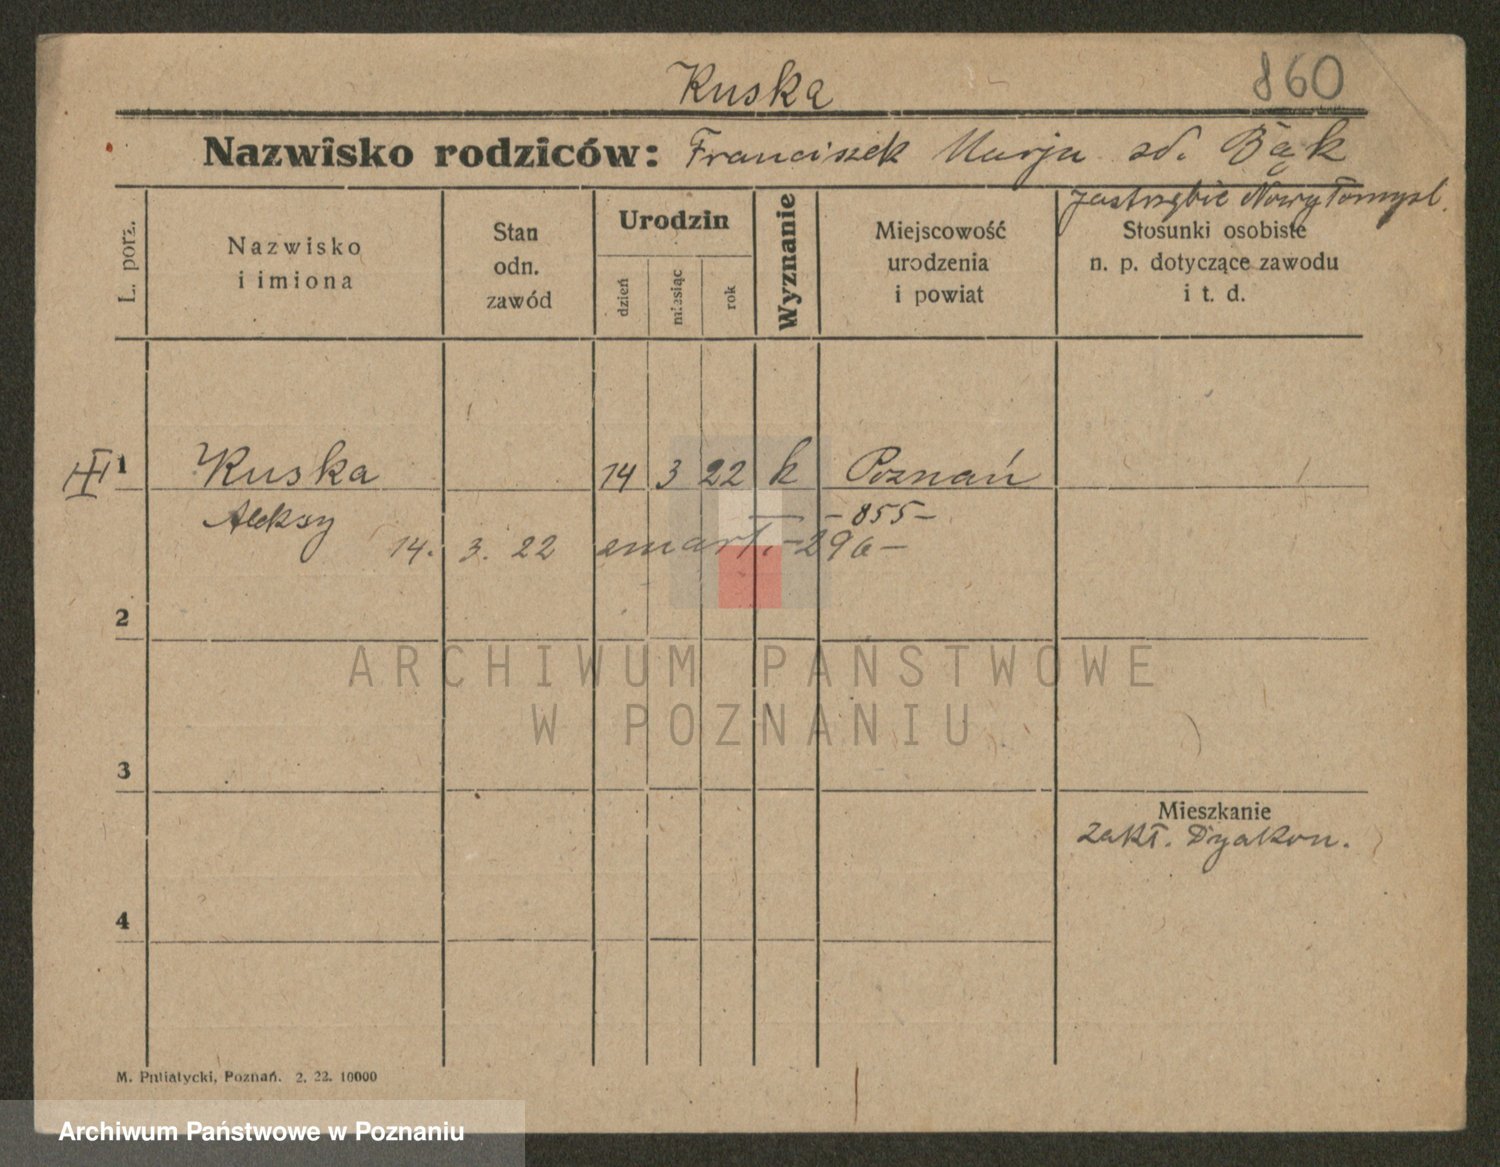 860
Kuska
Nazwisko rodziców: Franciszek Marja zd. Bąk
Jastrzębie Nowy Tomyśl.
L. porz.
Nazwisko
i imiona
Stan
odn.
zawód
Urodzin
dzień
miesiąc
rok
Wyznanie
Miejscowość
urodzenia
i powiat
Stosunki osobiste
n. p. dotyczące zawodu
i t. d.
III 1 Kuska 14 3 22 k Poznań
Aleksy — -855-
14. 3. 22 zmart. -296-
2
ARCHIWUM PAŃSTWOWE
W POZNANIU
3
Mieszkanie
Zakł. Dyakon.
4
M. Putiatycki, Poznań. 2. 22. 10000
Archiwum Państwowe w Poznaniu